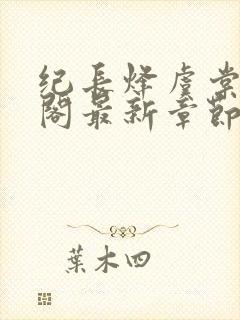 纪长烽虞棠
阁最新章节
葉木四